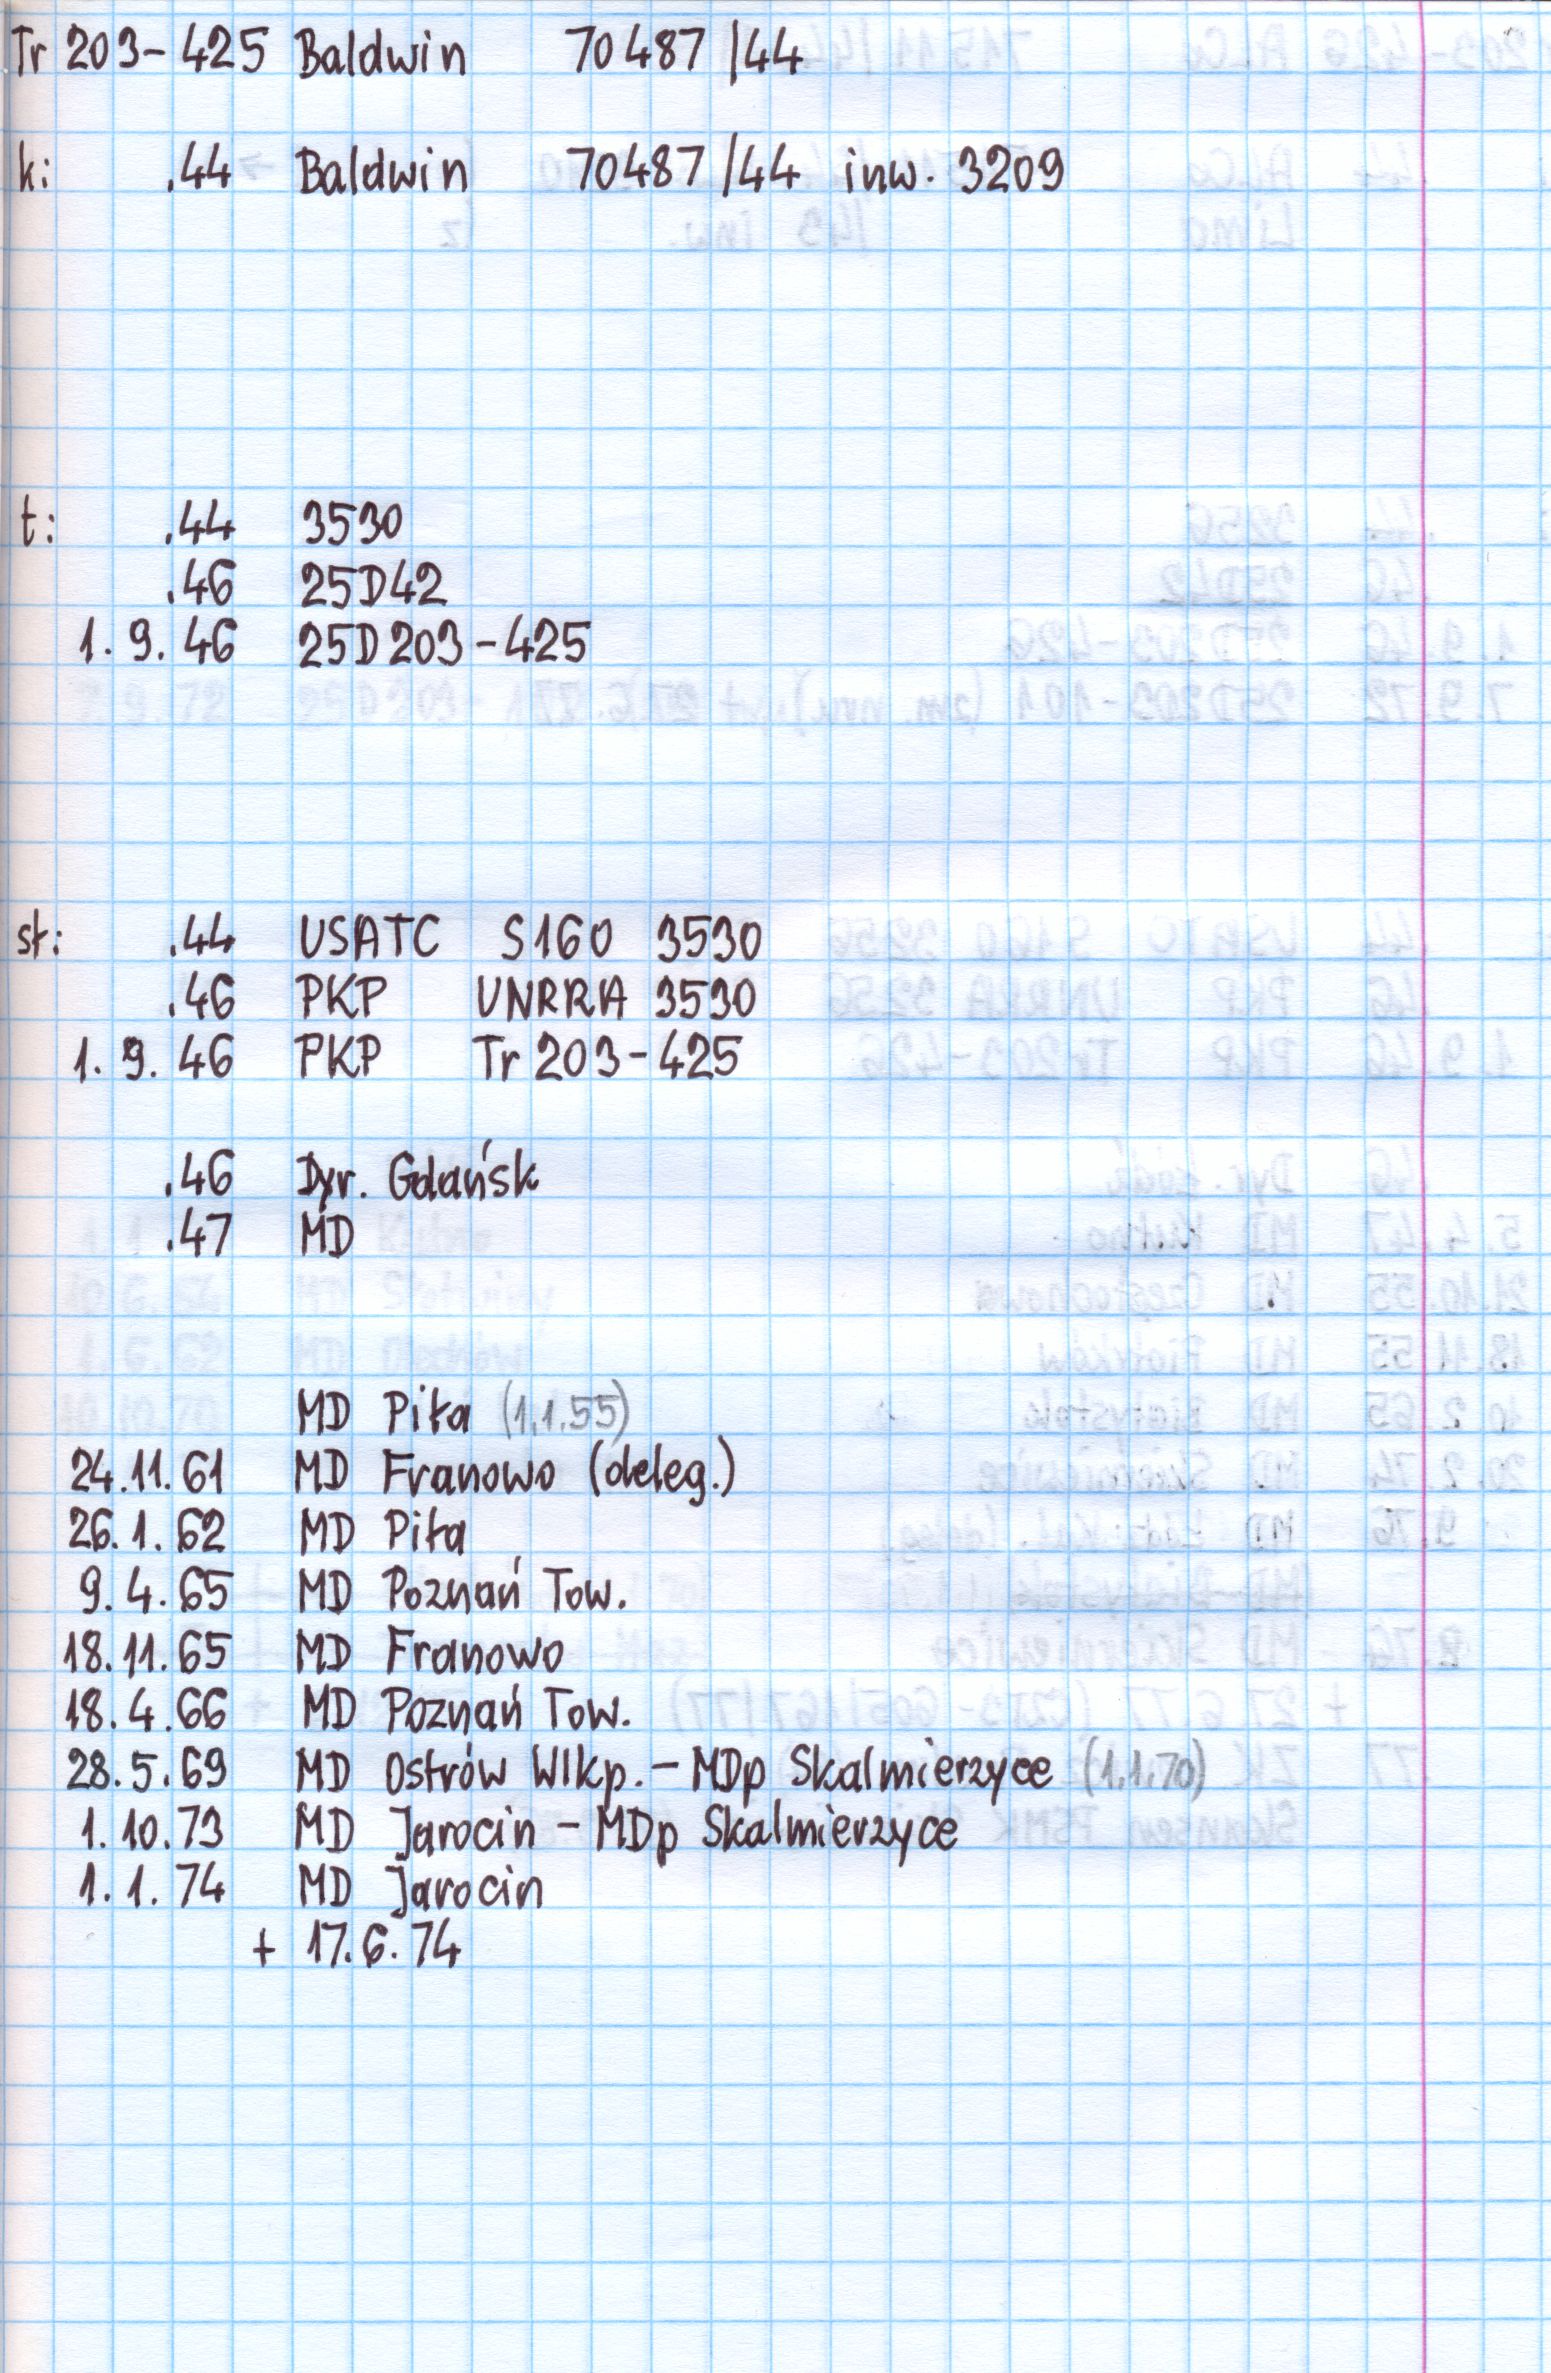 Tr 203-425 Baldwin 70487/44
k: .44 Baldwin 70487/44 inw. 3209
t: .44 3530
.46 25D42
1.9.46 25D203-425
st: .44 USATC S160 3530
.46 PKP UNRRA 3530
1.9.46 PKP Tr 203-425
.46 Dyr. Gdańsk
.47 MD
MD Piła (1.1.55)
24.11.61 MD Franowo (deleg.)
26.1.62 MD Piła
9.4.65 MD Poznań Tow.
18.11.65 MD Franowo
18.4.66 MD Poznań Tow.
28.5.69 MD Ostrów Wlkp. - MDp Skalmierzyce (1.1.70)
1.10.73 MD Jarocin - MDp Skalmierzyce
1.1.74 MD Jarocin
+ 17.6.74